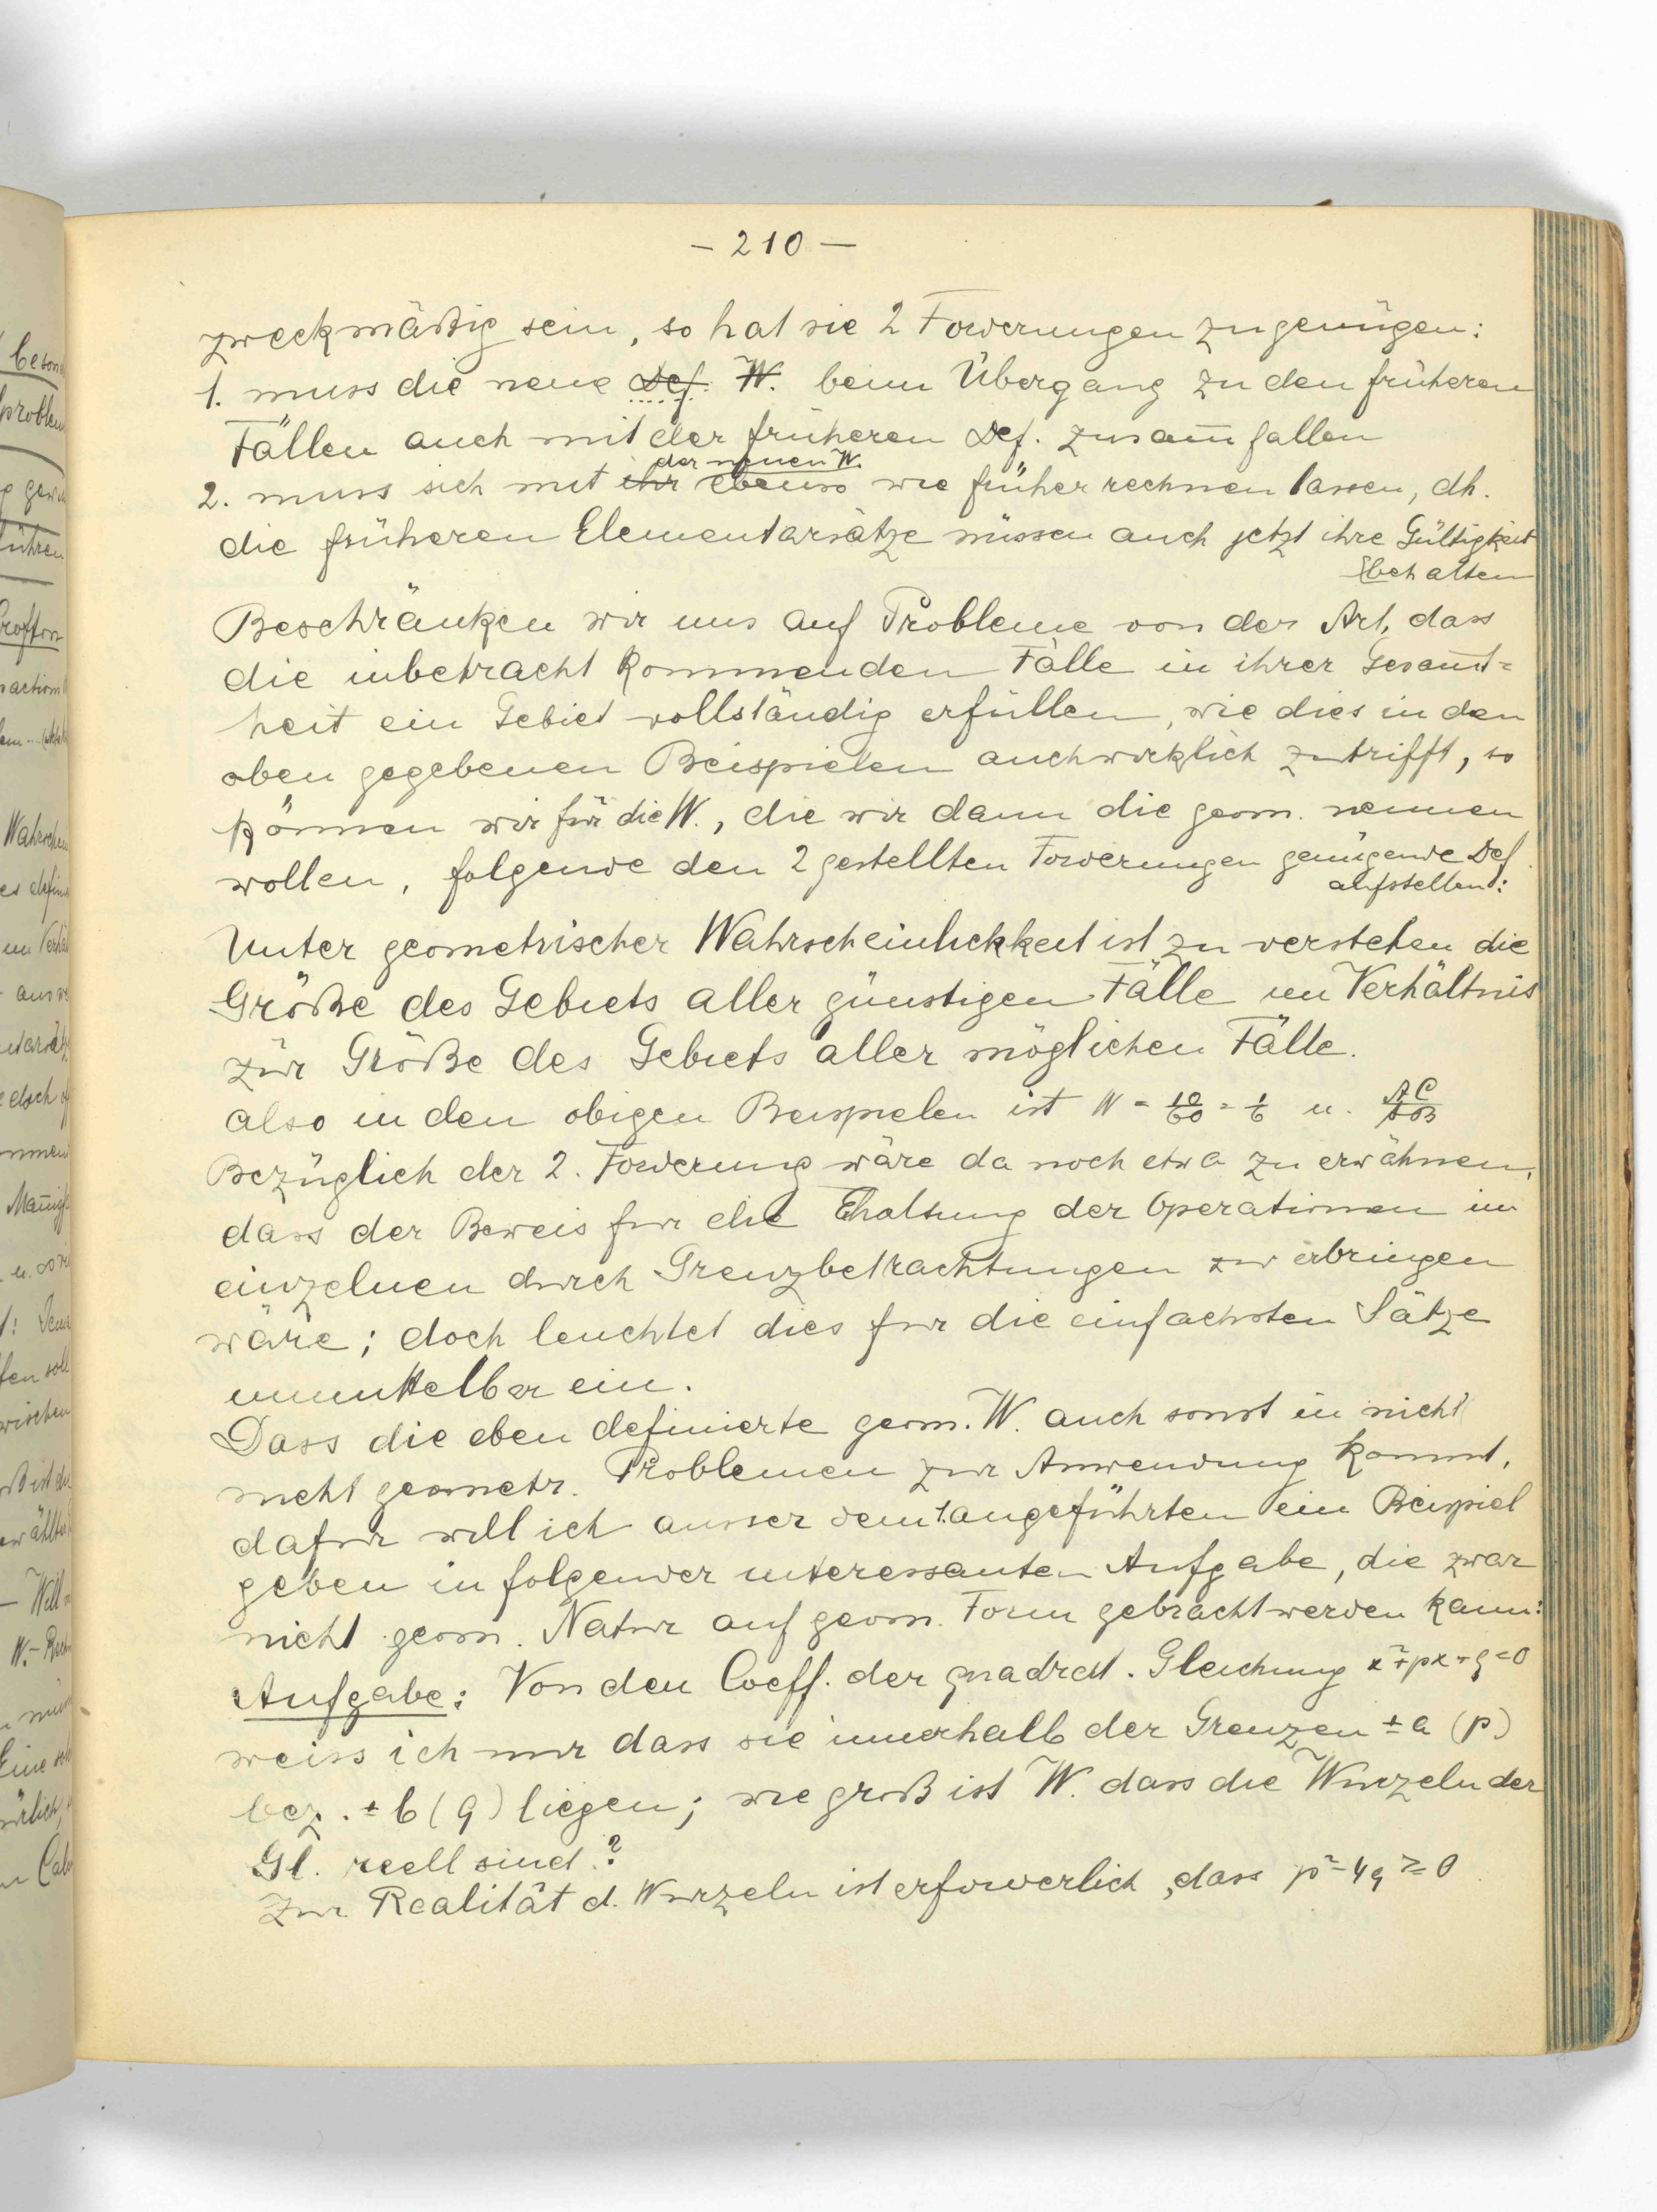 – 210 –
zweckmäßig sein, so hat sie 2 Forderungen zu genügen:
1. muss die neue Def. W. beim Übergang zu den früheren
Fällen auch mit der früheren Def. zusam̅fallen
der neuen W.
2. muss sich mit ihr ebenso wie früher rechnen lassen, dh.
die früheren Elementarsätze müssen auch jetzt ihre Gültigkeit
behalten
Beschränken wir uns auf Probleme von der Art, dass
die inbetracht kommenden Fälle in ihrer Gesam̅t=
heit ein Gebiet vollständig erfüllen, wie dies in den
oben gegebenen Beispielen auch wirklich zutrifft, so
können wir für die W., die wir dann die geom. nennen
wollen, folgende den 2 gestellten Forderungen genügende Def.
aufstellen:
Unter geometrischer Wahrscheinlichkkeit ist zu verstehen die
Größe des Gebiets aller günstigen Fälle im Verhältnis
zur Größe des Gebiets aller möglichen Fälle.
also in den obigen Beispielen ist W = 10/60 = 1/6 u. AC/AB
Bezüglich der 2. Forderung wäre da noch etwa zu erwähnen,
dass der Beweis für die Ehaltung der Operationen im
einzelnen durch Grenzbetrachtungen zu erbringen
wäre; doch leuchtet dies für die einfachsten Sätze
unmittelbar ein.
Dass die eben definierte geom. W. auch sonst in nicht
nicht geometr. Problemen zur Anwendung kommt,
dafür will ich ausser dem 1. angeführten ein Beispiel
geben in folgender interessanten Aufgabe, die zwar
nicht geom. Natur auf geom. Form gebracht werden kann:
Aufgabe: Von den Coeff. der quadrat. Gleichung x²+px+q=0
weiss ich nur dass sie innerhalb der Grenzen ±a (p)
bez. ±b (q) liegen; wie groß ist W. dass die Wurzeln der
Gl. reell sind?
Zur Realität d. Wurzeln ist erforderlich, dass p²-4q ≥ 0